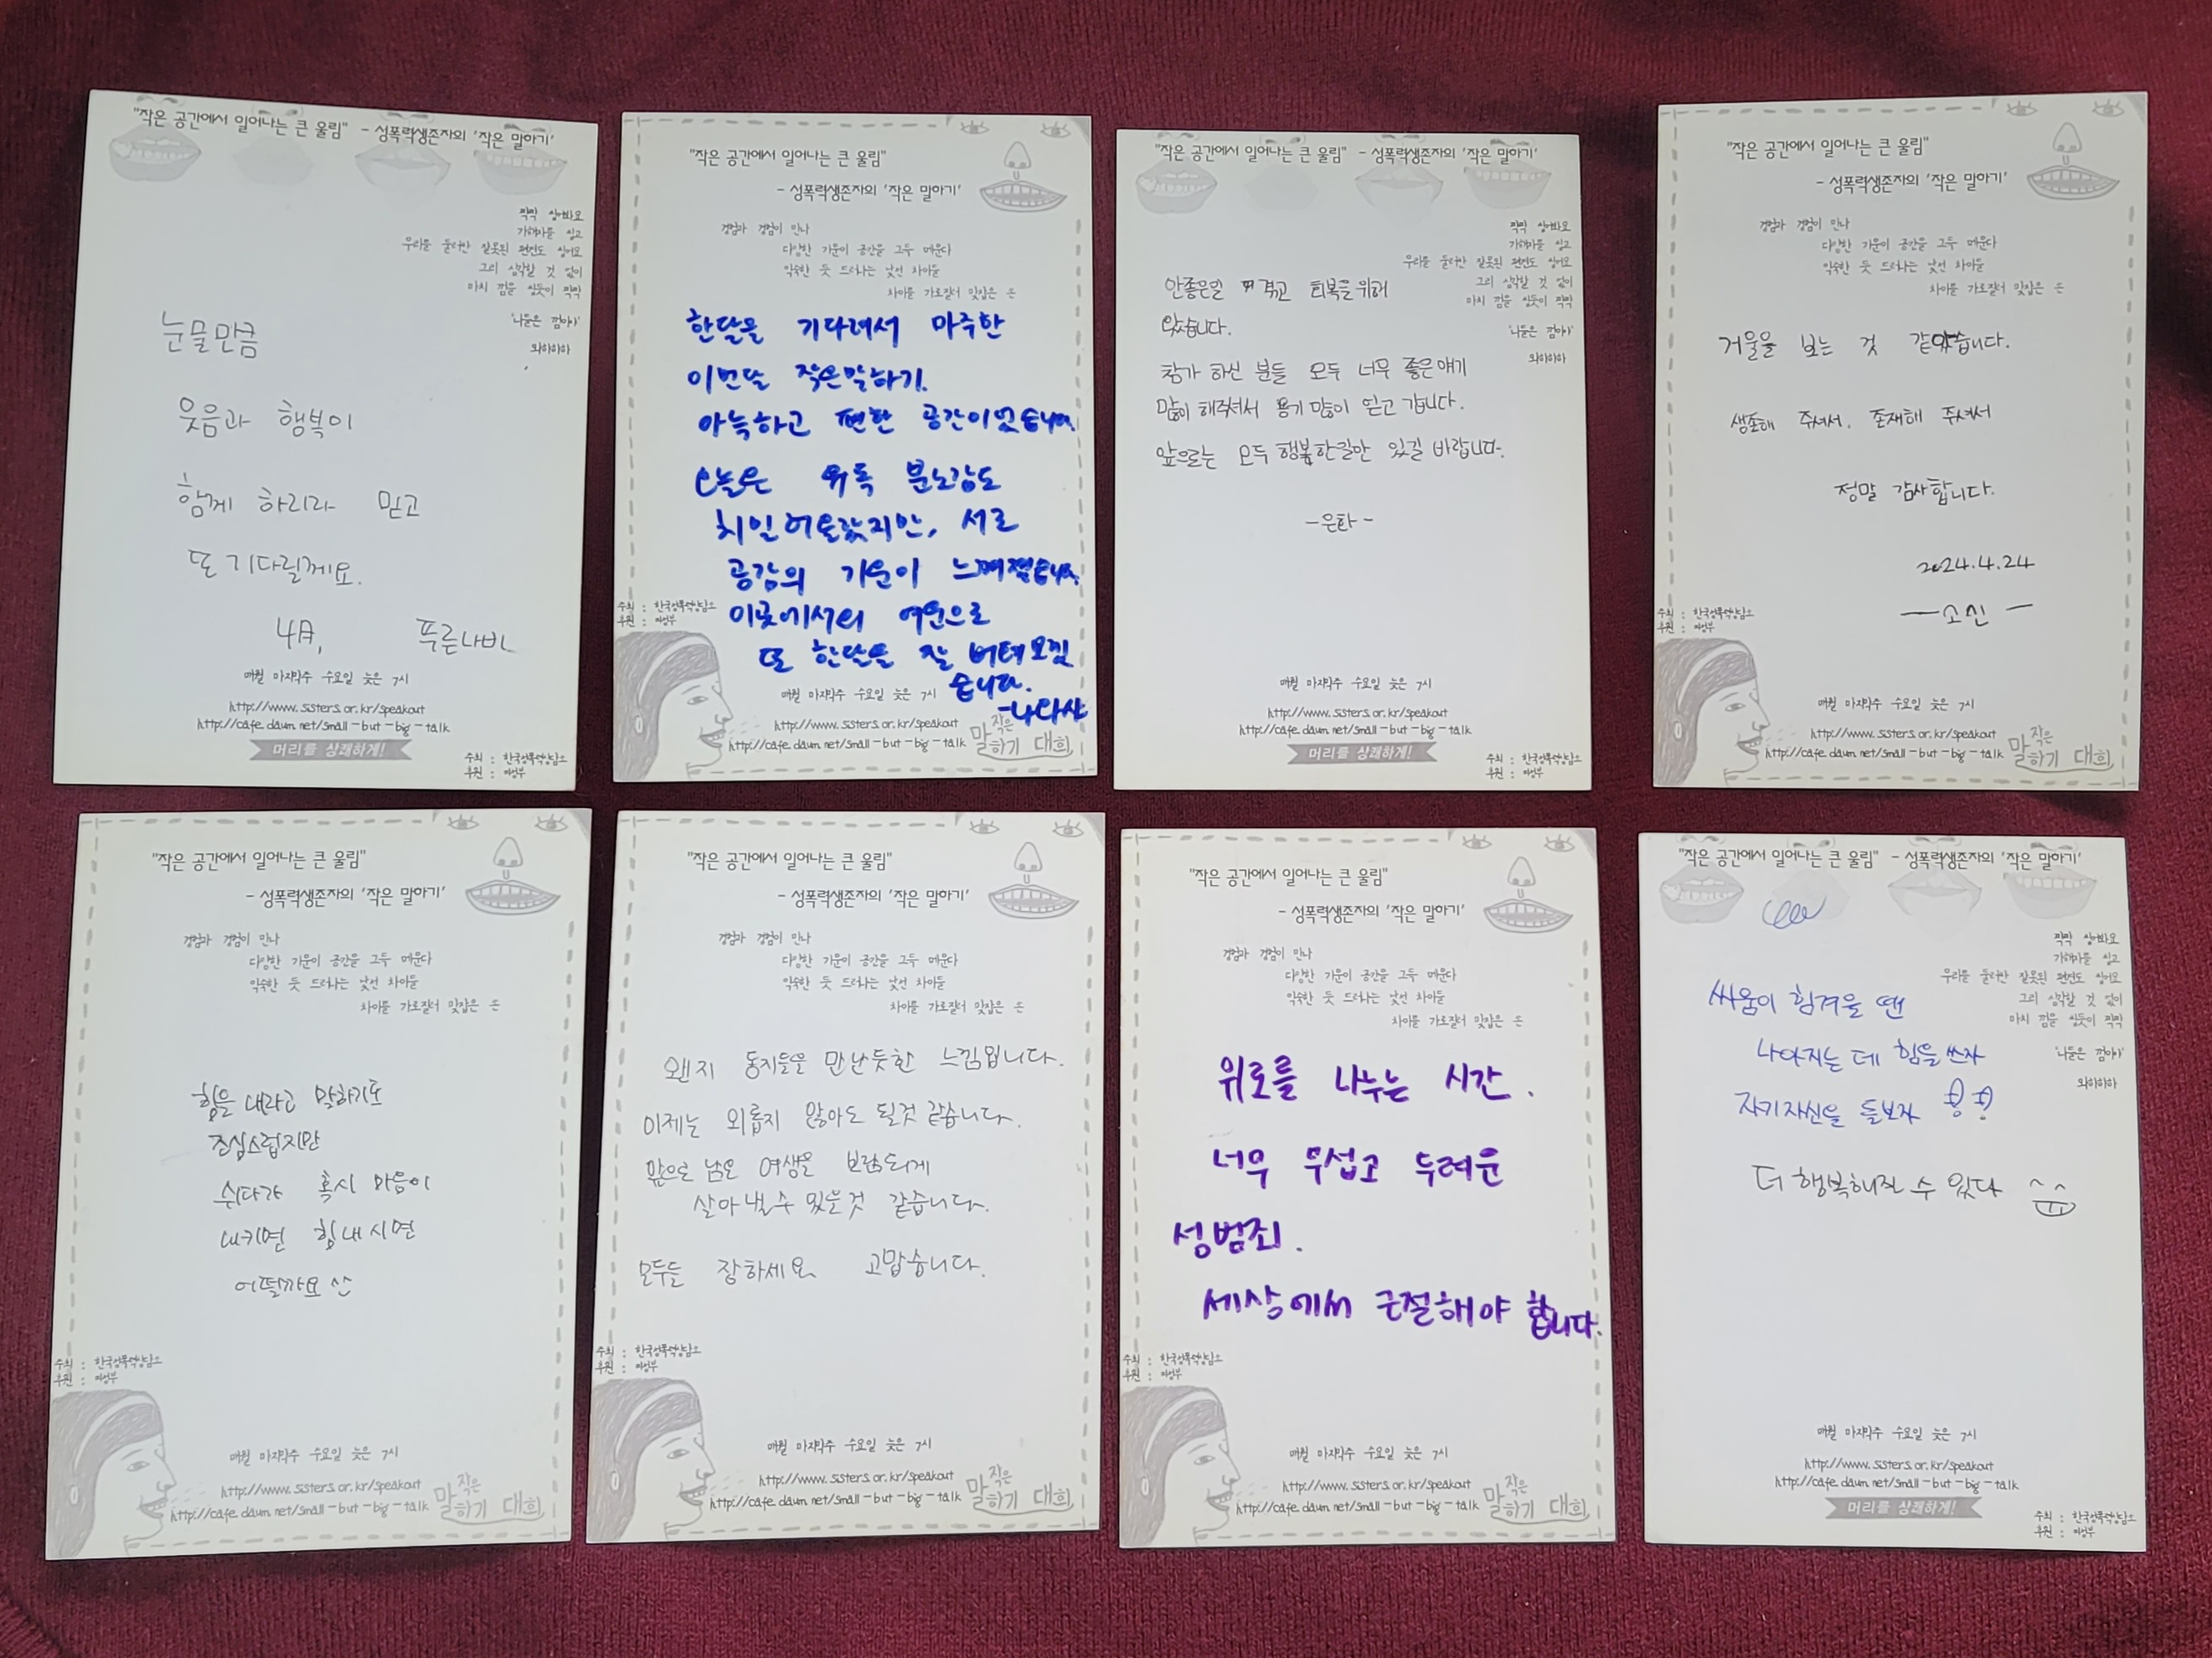 "작은 공간에서 일어나는 큰 울림" - 성폭력생존자의 '작은 말하기'
팍팍 씹어봐요
가해자를 씹고
우리를 둘러싼 잘못된 편견도 씹어요
그리 심각할 것 없이
마치 껌을 씹듯이 팍팍
'나들은 껌이야'
와하하하
눈물만큼
웃음과 행복이
함께 하리라 믿고
또 기다릴께요.
4月, 푸른나비
매월 마지막주 수요일 늦은 7시
http://www.sisters.or.kr/speakout
http://cafe.daum.net/small-but-big-talk
머리를 상쾌하게!
주최 : 한국성폭력상담소
후원 : 여성부
"작은 공간에서 일어나는 큰 울림"
- 성폭력생존자의 '작은 말하기'
경험과 경험이 만나
다양한 기운이 공간을 그득 메운다
익숙한 듯 드러나는 낯선 차이들
차이를 가로질러 맞잡은 손
한달을 기다려서 마주한
이번달 작은말하기.
아늑하고 편한 공간이었습니다.
오늘은 유독 분노감도
치밀어올랐지만, 서로
공감의 기운이 느껴졌습니다.
이곳에서의 여운으로
또 한달을 잘 버텨보겠
습니다.
-나다산
주최 : 한국성폭력상담소
후원 : 여성부
매월 마지막주 수요일 늦은 7시
http://www.sisters.or.kr/speakout
http://cafe.daum.net/small-but-big-talk
작은
말하기 대회
"작은 공간에서 일어나는 큰 울림" - 성폭력생존자의 '작은 말하기'
팍팍 씹어봐요
가해자를 씹고
우리를 둘러싼 잘못된 편견도 씹어요
그리 심각할 것 없이
마치 껌을 씹듯이 팍팍
'나들은 껌이야'
와하하하
안좋은일 겪고 회복을위해
왔습니다.
참가 하신 분들 모두 너무 좋은얘기
많이 해주셔서 용기 많이 얻고 갑니다.
앞으로는 모두 행복한일만 있길 바랍니다.
-은하-
매월 마지막주 수요일 늦은 7시
http://www.sisters.or.kr/speakout
http://cafe.daum.net/small-but-big-talk
머리를 상쾌하게!
주최 : 한국성폭력상담소
후원 : 여성부
"작은 공간에서 일어나는 큰 울림"
- 성폭력생존자의 '작은 말하기'
경험과 경험이 만나
다양한 기운이 공간을 그득 메운다
익숙한 듯 드러나는 낯선 차이들
차이를 가로질러 맞잡은 손
거울을 보는 것 같았습니다.
생존해 주셔서, 존재해 주셔서
정말 감사합니다.
2024.4.24
- 소신 -
주최 : 한국성폭력상담소
후원 : 여성부
매월 마지막주 수요일 늦은 7시
http://www.sisters.or.kr/speakout
http://cafe.daum.net/small-but-big-talk
작은
말하기 대회
"작은 공간에서 일어나는 큰 울림"
- 성폭력생존자의 '작은 말하기'
경험과 경험이 만나
다양한 기운이 공간을 그득 메운다
익숙한 듯 드러나는 낯선 차이들
차이를 가로질러 맞잡은 손
힘을 내라고 말하기도
조심스럽지만
쉬다가 혹시 마음이
내키면 힘내시면
어떨까요 ^^
주최 : 한국성폭력상담소
후원 : 여성부
매월 마지막주 수요일 늦은 7시
http://www.sisters.or.kr/speakout
http://cafe.daum.net/small-but-big-talk
작은
말하기 대회
"작은 공간에서 일어나는 큰 울림"
- 성폭력생존자의 '작은 말하기'
경험과 경험이 만나
다양한 기운이 공간을 그득 메운다
익숙한 듯 드러나는 낯선 차이들
차이를 가로질러 맞잡은 손
왠지 동지들을 만난듯한 느낌입니다.
이제는 외롭지 않아도 될것 같습니다.
앞으로 남은 여생은 보람되게
살아낼수 있을것 같습니다.
모두들 장하세요 고맙습니다.
주최 : 한국성폭력상담소
후원 : 여성부
매월 마지막주 수요일 늦은 7시
http://www.sisters.or.kr/speakout
http://cafe.daum.net/small-but-big-talk
작은
말하기 대회
"작은 공간에서 일어나는 큰 울림"
- 성폭력생존자의 '작은 말하기'
경험과 경험이 만나
다양한 기운이 공간을 그득 메운다
익숙한 듯 드러나는 낯선 차이들
차이를 가로질러 맞잡은 손
위로를 나누는 시간.
너무 무섭고 두려운
성범죄.
세상에서 근절해야 합니다.
주최 : 한국성폭력상담소
후원 : 여성부
매월 마지막주 수요일 늦은 7시
http://www.sisters.or.kr/speakout
http://cafe.daum.net/small-but-big-talk
작은
말하기 대회
"작은 공간에서 일어나는 큰 울림" - 성폭력생존자의 '작은 말하기'
팍팍 씹어봐요
가해자를 씹고
우리를 둘러싼 잘못된 편견도 씹어요
그리 심각할 것 없이
마치 껌을 씹듯이 팍팍
'나들은 껌이야'
와하하하
싸움이 힘겨울 땐
나아지는 데 힘을 쓰자
자기자신을 돌보자
더 행복해질 수 있다
매월 마지막주 수요일 늦은 7시
http://www.sisters.or.kr/speakout
http://cafe.daum.net/small-but-big-talk
머리를 상쾌하게!
주최 : 한국성폭력상담소
후원 : 여성부